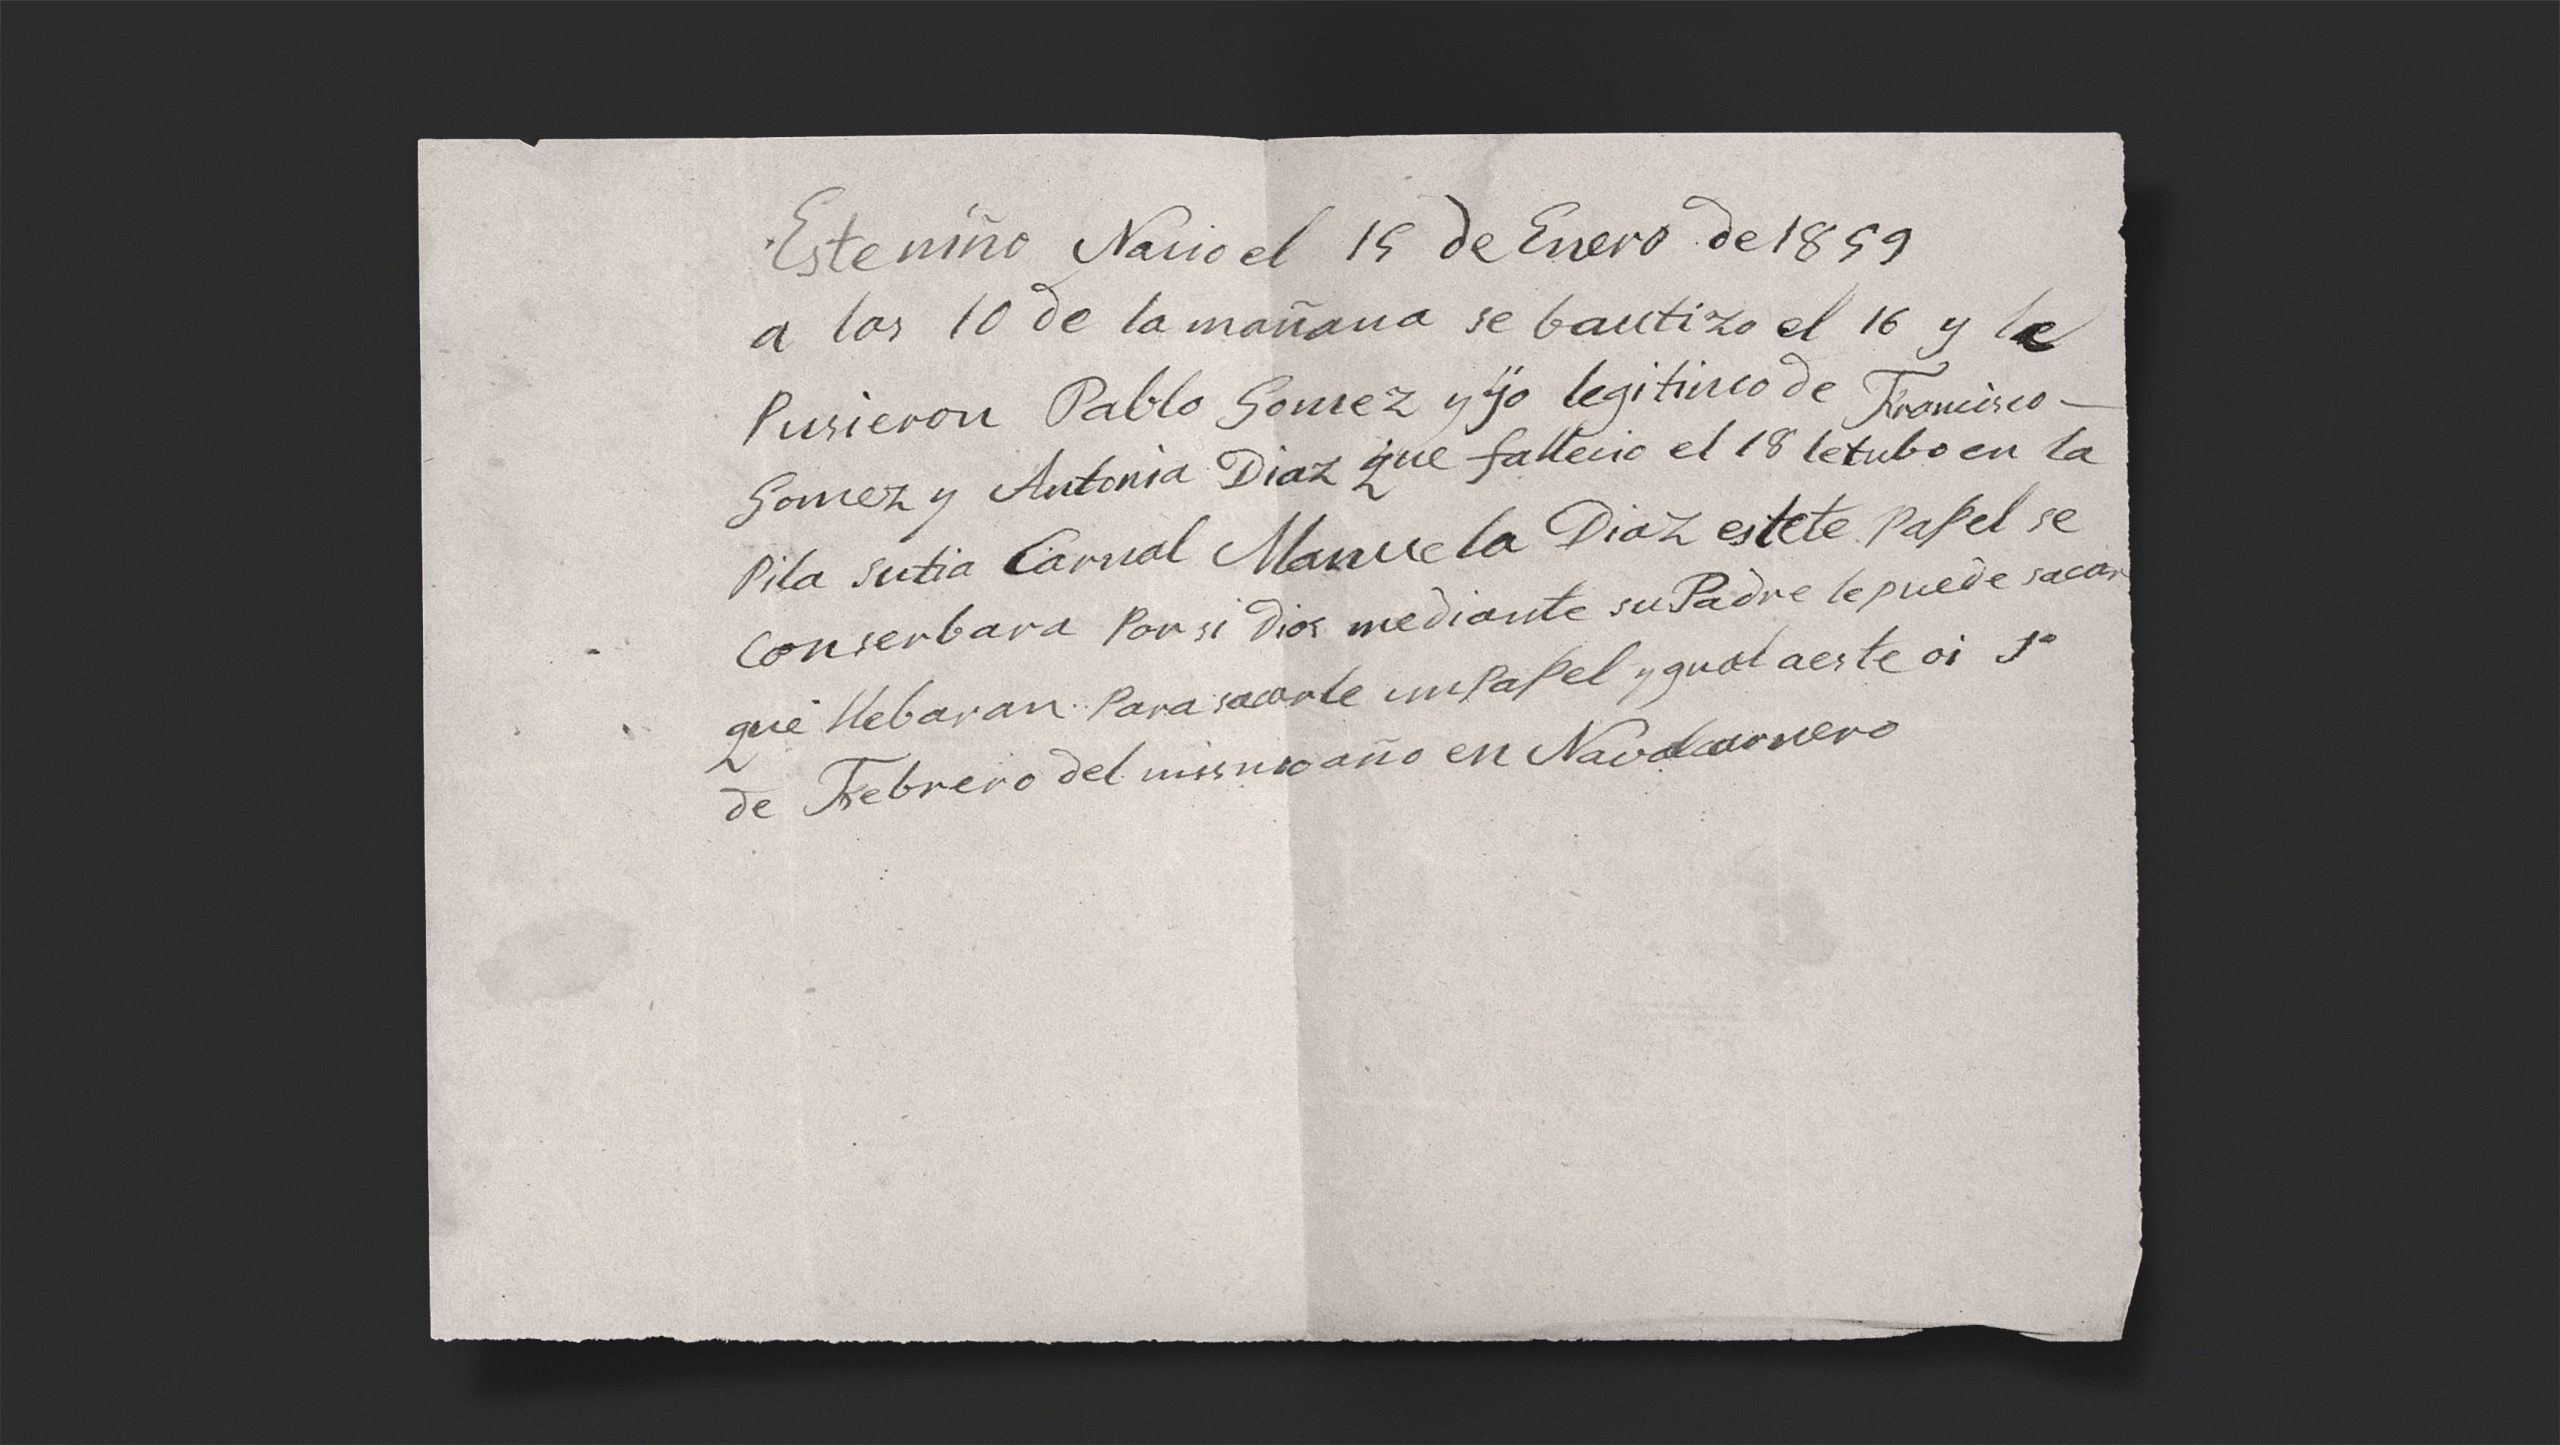 Este niño Nacio el 15 de Enero de 1859
a las 10 de la mañana se bautizo el 16 y le
Pusieron Pablo Gomez yijo legitimo de Francisco —
Gomez y Antonia Diaz que fallecio el 18 letubo en la
Pila sutia Carnal Manuela Diaz estete papel se
conserbara Por si Dios mediante su Padre le puede sacar
que llebaran Para sacarle un papel ygual a este oi 1º
de Febrero del mismo año en Navalcarnero